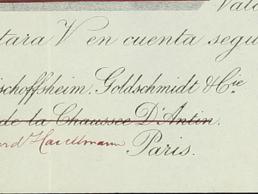 Valo
tara V en cuenta segu
schoffsheim, Goldschmidt & Cie
de la Chaussée D'Antin.
Paris.